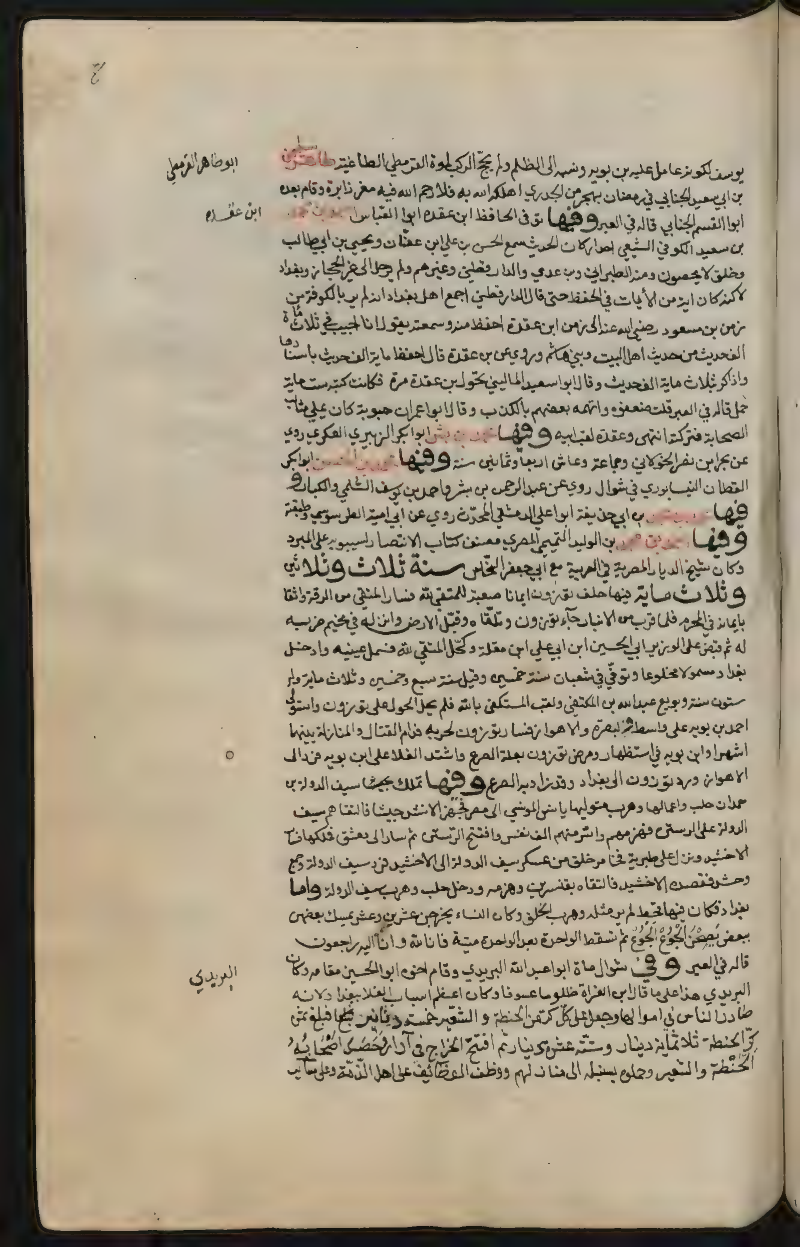 ابو طاهر القرمطي
ابن عقده
البريدي
يوسف لكونه عامل عليه بن بويه ونسبه الى الظلم ولم يحج الركب لموة القرمطي الطاغية طاهر سليمن
بن ابي سعيد الجنابي في رمضان بهجر من الجدري اهلكه الله به فلا رحم الله فيه مغرز ابرة وقام بعده
ابوا القسم الجنابي قاله في العبر وفيها توفي الحافظ ابن عقده ابوا العباس احمد بن محمد
بن سعيد الكوفي الشيعي احد اركان الحديث سمع الحسن بن علي ابن عفان ويحيى بن ابي طالب
وخلق لا يحصون ومنه الطبراني وبن عدي والدارقطني وغيرهم ولم يرحل الى غير الحجاز وبغداد
لاكنه كان اية من الأيات في الحفظ حتى قال الدارقطني اجمع اهل بغداد انه لم ير بالكوفة من
زمن بن مسعود رضي الله عنه الى زمن ابن عقدة احفظ منه وسمعته يقول انا اجيب في ثلاث مائة
الف حديث من حديث اهل البيت وبني هاشم وروي عن بن عقدة قال احفظ ماية الف حديث باسنادها
واذاكر بثلاث ماية الف حديث وقال ابوا سعيد الماليني تحول بن عقدة مرة فكانت كتبه ست ماية
حمل قاله في العبر قلت ضعفوه واتهمه بعضهم بالكذب وقال ابوا عمران حيوية كان يملي مثالب
الصحابة فتركته انتهى وعقدة لقب ابيه وفيها محمد بن بشر ابوا بكر الزبيري العكري روي
عن بحر ابن نصر الخولاني وجماعة وعاش اربعا وثمانين سنة وفيها محمد بن الحسن ابوا بكر
القطان النيسابوري في شوال روي عن عبد الرحمن بن بشر واحمد بن يوسف السلمي والكبار و
فيها بن ابي حذيفة ابوا علي الدمشقي المحدث روي عن ابي امية الطرسوسي وطبقته
وفيها احمد بن محمد بن الوليد التميمي المصري مصنف كتاب الانتصار لسيبويه على المبرد
وكان شيخ الديار المصرية في العربية مع ابي جعفر النحاس سنة ثلاث وثلاثين
وثلاث ماية فيها حلف توزون ايمانا صعبة للمتقي لله فسار المتقي من الرقة واثقا
بايمانه في المحرم فلما قرب من الانبار جآء توزون وتلقاه وقبل الارض وانزله في مخيم ضربه
له ثم قبض على الوزير ابي الحسين ابن ابي علي ابن مقلة وكحل المتقي لله فسمل عينيه وادخل
بغداد مسمولا مخلوعا وتوفي في شعبان سنة خمسين وقيل سنة سبع وخمسين وثلاث ماية وله
ستون سنة وبويع عبد الله بن المكتفي ولقب المستكفي بالله فلم يحل الحول على توزون واستولى
احمد بن بويه على واسط والبصرة والاهواز فسار توزون لحربه فدام القتال والمنازلة بينهما
اشهرا وابن بويه في استظهار ومرض توزون بعلة الصرع واشتد الغلا على ابن بويه فرد الى
الاهواز ورد توزون الى بغداد وقد زاد به الصرع وفيها تملك سيف الدولة بن
حمدان حلب واعمالها وهرب متوليها يانس المونسي الى مصر فجهز الاخشيد جيشا فالتقاهم سيف
الدولة على الرستن فهزمهم واسر منهم الف نفس وافتتح الرستن ثم سار الى دمشق فملكها فسار
الاخشيد ونزل على طبرية فخامر خلق من عسكر سيف الدولة الى الاخشيد فرد سيف الدولة وجمع
وحشد فقصده الاخشيد فالتقاه بقنسرين وهزمه ودخل حلب وهرب سيف الدولة واما
بغداد فكان فيها قحط لم ير مثله وهرب الخلق وكان النساء يخرجن عشرين وعشر يمسك بعضهن
ببعض يصحن الجوع الجوع ثم تسقط الواحدة بعد الواحدة ميتة فانا لله وانا اليه راجعون
قاله في العبر وفي شوال مات ابوا عبد الله البريدي وقام اخوه ابوا الحسين مقامه وكان
البريدي هذا على ما قال ابن الفراة ظلوما عسوفا وكان اعظم اسباب الغلا ببغداد لانه
صادر الناس في اموالهم وجعل على كل كر من الحنطة والشعير خمسة دنانير فبلغ ثمن
كر الحنطة ثلاثماية دينار وستة عشر دينار ثم افتتح الخراج في آذار وحصد اصحابه
الحنطة والشعير وحملوه بسنبله الى منازلهم ووظف الوظائف على اهل الذمة وعلى سآير